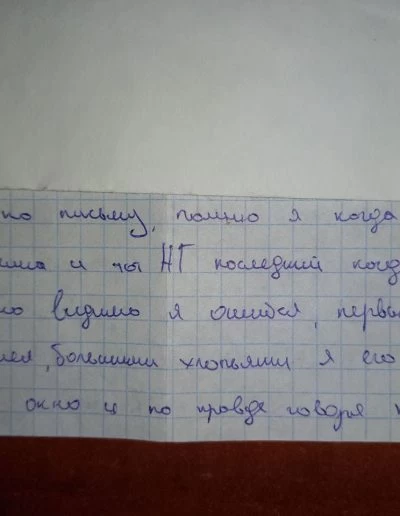 но письму, помню я когда
и мы НГ последний когд
но видимо я ошибся, первы
большими хлопьями я его
окно и по правде говоря